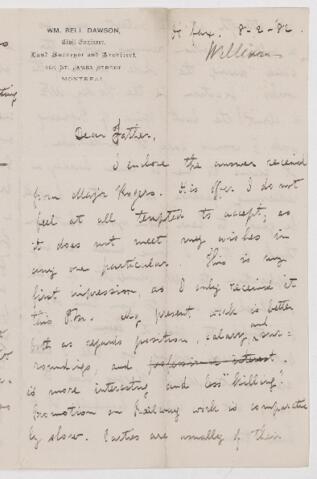 WM. BELL DAWSON,
Civil Engineer,
Land Surveyor and Architect
ST. JAMES STREET
MONTREAL
8-2-'82
William
Dear Father,
I enclose the answer received
from Major Rogers. His offer I do not
feel at all tempted to accept, as
it does not meet my wishes in
any one particular. This is my
first impression, as I only received it
this P.m. My present work is better
both as regards position, salary, and sur-
roundings, and professional interest.
is more interesting and less "killing".
Promotion on Railway work is comparative
ly slow. Parties are usually of their